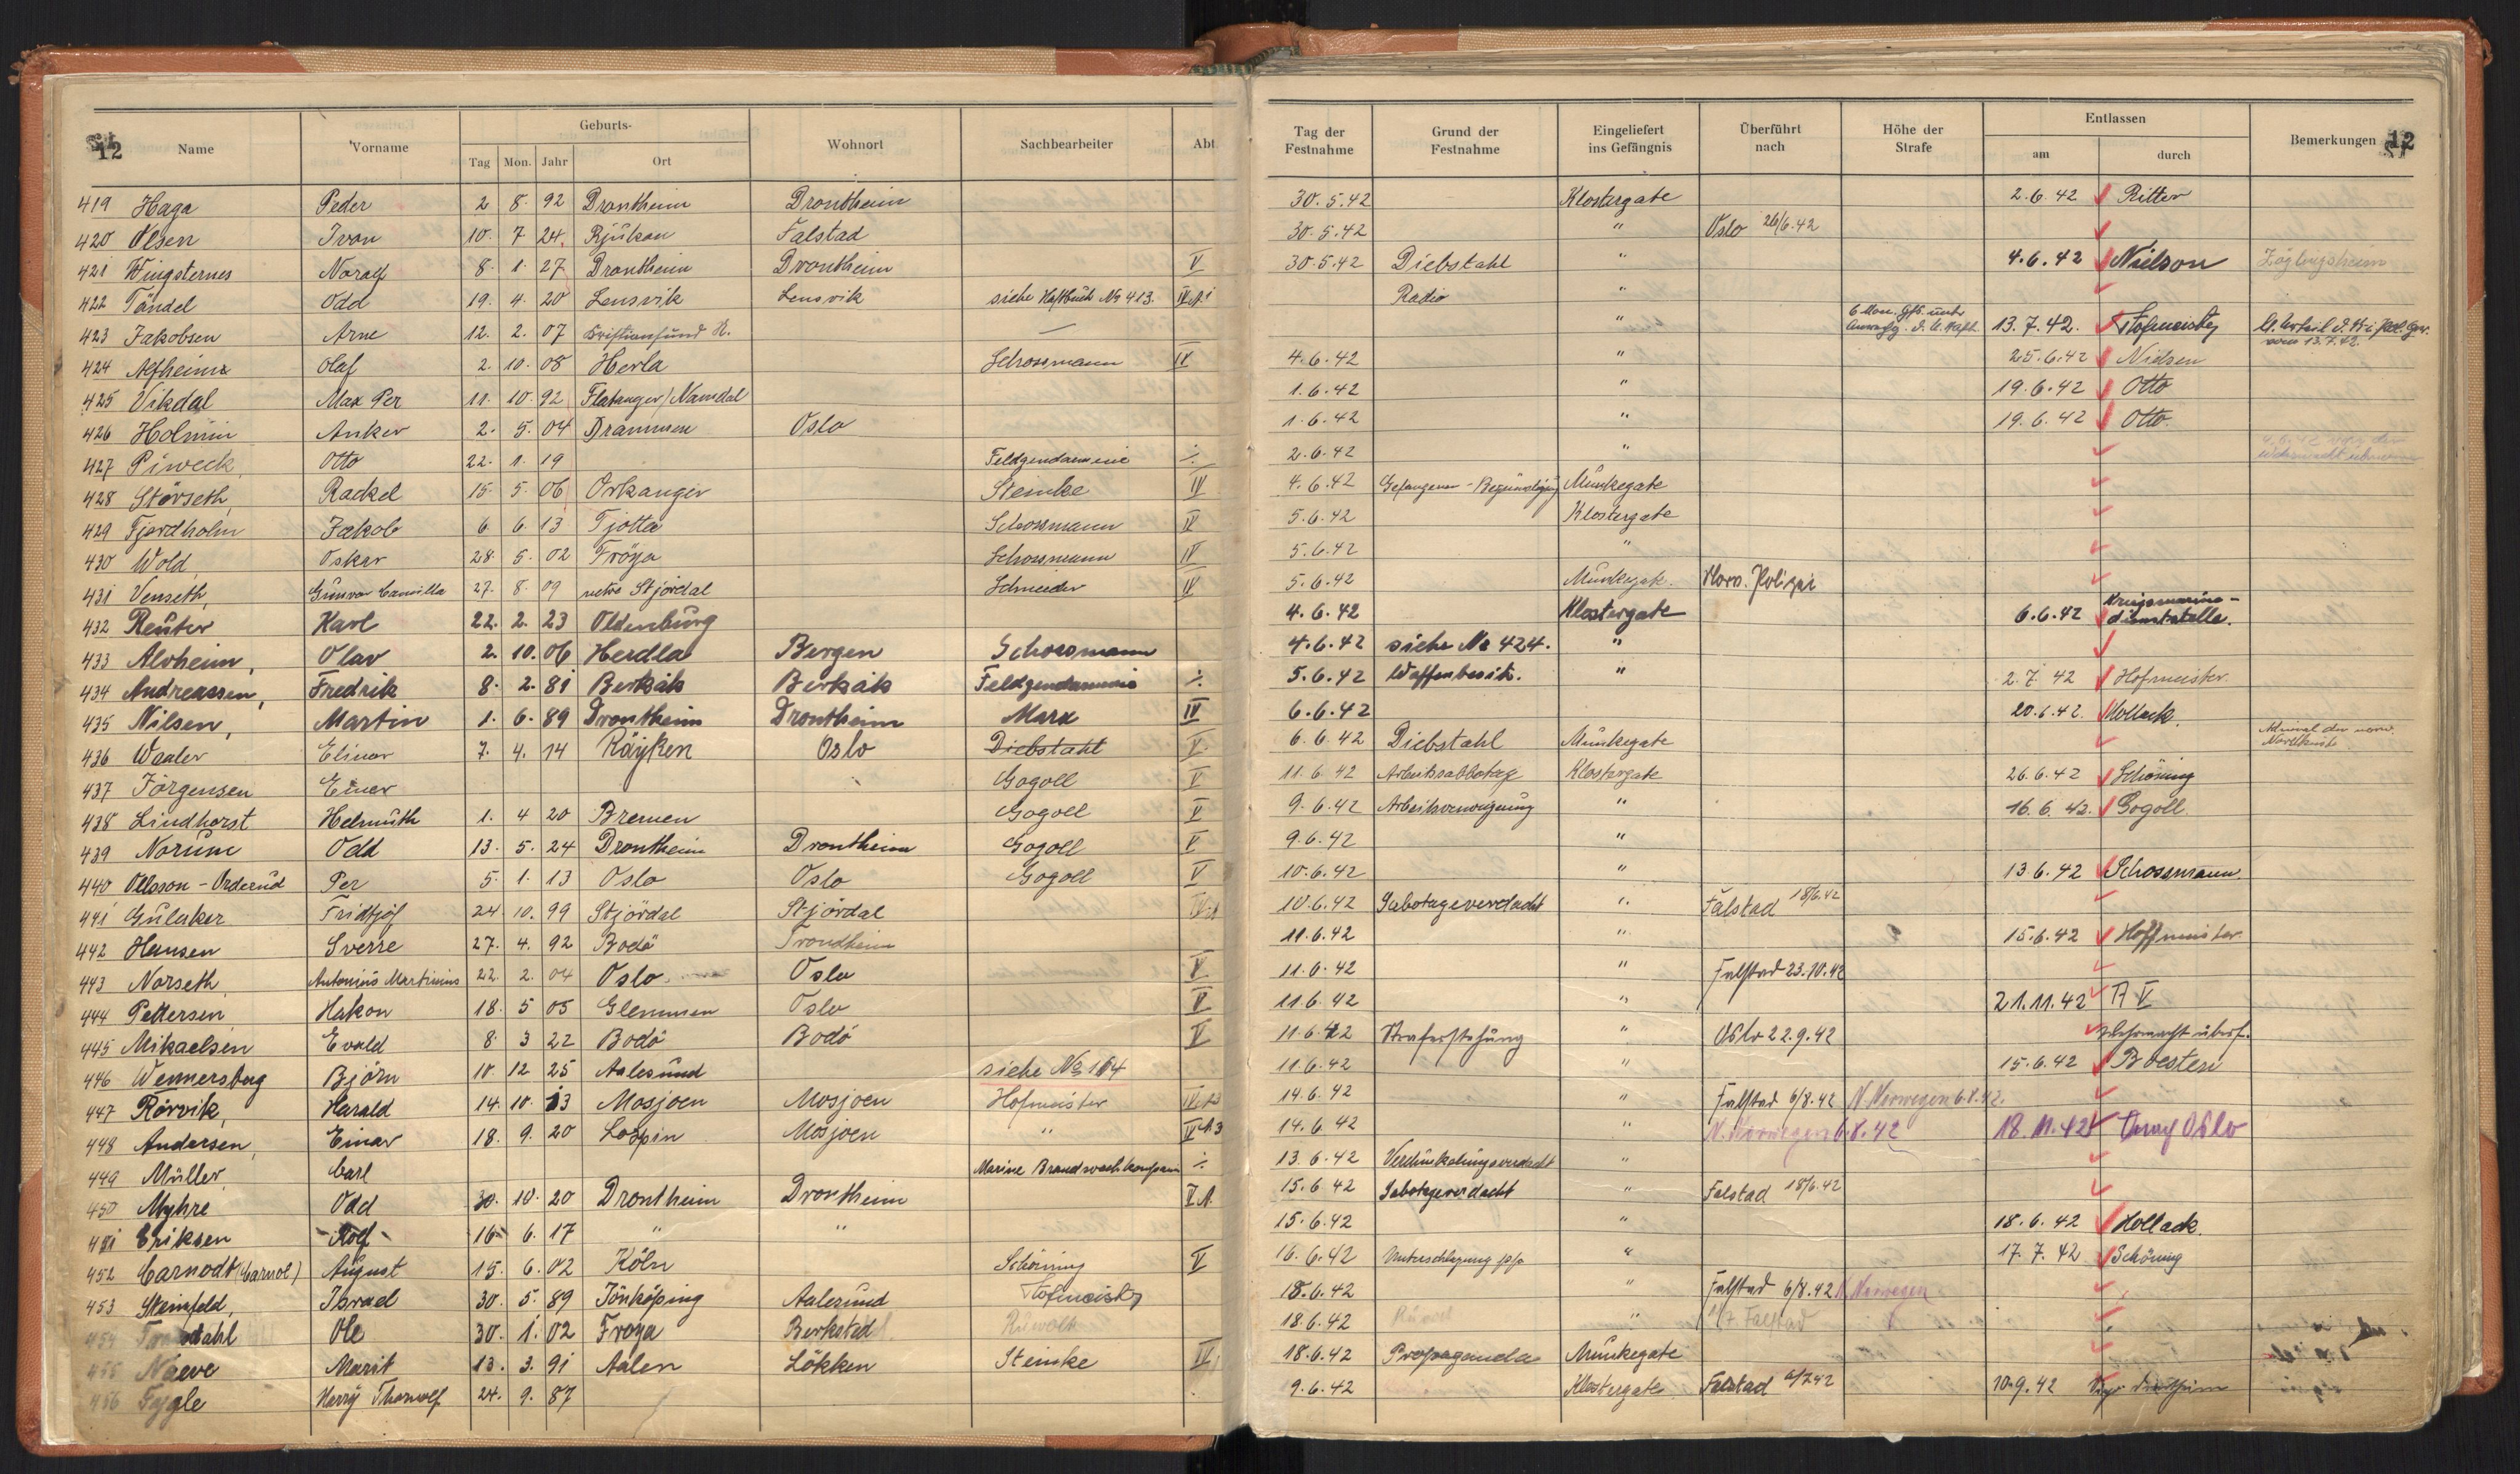 12 Name Vorname Geburts- Tag Mon. Jahr Ort Wohnort Sachbearbeiter Abt
Tag der Festnahme Grund der Festnahme Eingeliefert ins Gefängnis Überführt nach Höhe der Strafe Entlassen am durch Bemerkungen 12
419 Haga Peder 2 8. 92 Drontheim Drontheim 30.5.42 Klostergate 2.6.42 Ritter
420 Olsen Ivan 10. 7 24. Rjukan Falstad 30.5.42 " Oslo 26/6.42
421 Wingsternes Noralf 8. 1. 27 Drontheim Drontheim V 30.5.42 Diebstahl " 4.6.42 Nielson Zöglingsheim
422 Tändel Odd 19. 4. 20 Lensvik Lensvik siehe Haftbuch No 413. Radio "
423 Jakobsen Arne 12. 2. 07 Kristiansund N. — " 6 Mon. Gfs. unter 13.7.42. Hofmeister
vom 13.7.42.
424 Alfheim Olaf 2. 10. 08 Herla Schossmann IV 4.6.42 " 25.6.42 Nielsen
425 Vikdal Max Per 11. 10. 92 Flatanger/Namdal 1.6.42 " 19.6.42 Otto
426 Holmin Anker 2. 5. 04 Drammen Oslo 1.6.42 " 19.6.42 Otto
427 Piweck, Otto 22. 1. 19 Feldgendarmerie ÷ 2.6.42 "
428 Störseth, Rackel 15. 5. 06 Orkanger Steinke IV 4.6.42 Gefangenen-Begünstigung Munkegate
429 Fjerdholm Jakob 6 6. 13 Tjötta Schossmann IV 5.6.42 Klostergate
430 Wold, Oskar 28 5. 02 Fröya Schossmann IV 5.6.42 "
431 Venseth, Gunvor Camilla 27. 8. 09 nedre Stjördal Schneider IV 5.6.42 Munkegate. Norw. Polizei
432 Reuter Karl 22. 2. 23 Oldenburg 4.6.42 Klostergate 6.6.42 Kriegsmarine-dienststelle.
433 Alvheim, Olav 2. 10. 06 Herdla Bergen Schossmann 4.6.42 siehe No 424. "
434 Andreassen, Fredrik 8. 2. 81 Berkåk Berkåk Feldgendarmerie ÷ 5.6.42 Waffenbesitz. " 2.7.42 Hofmeister.
435 Nilsen, Martin 1. 6. 89 Drontheim Drontheim Marx IV 6.6.42 20.6.42. Hollack.
436 Waaler Elinor 7. 4. 14 Röyken Oslo Diebstahl V. 6.6.42 Diebstahl Munkegate
437 Jörgensen Einer Gogoll V 11.6.42 Arbeitssabbotage Klostergate 26.6.42 Schöning
438 Lindhorst Helmuth 1. 4 20 Bremen Gogoll V 9.6.42 Arbeitsverweigerung " 16.6.42. Gogoll.
439 Norum Odd 13. 5. 24 Drontheim Drontheim Gogoll V 9.6.42 "
440 Ollsson-Orderud Per 5. 1. 13 Oslo Oslo Gogoll V 10.6.42 " 13.6.42 Schossmann
441 Gulaker Fridtjof 24. 10. 99 Stjördal Stjördal 10.6.42 Sabotageverdacht " Falstad 18/6.42
442 Hansen Sverre 27. 4. 92 Bodö Trondheim 11.6.42 " 15.6.42 Hoffmeister.
443 Norseth, Antonius Martinius 22. 2. 04 Oslo Oslo V 11.6.42 " Falstad 23.10.42
444 Pettersen Hakon 18. 5 05 Glemmen Oslo V 11.6.42 " 21.11.42 A V
445 Mikaelsen Evald 8. 3 22 Bodö Bodö V 11.6.42 " Oslo 22.9.42 Wehrmacht überf.
446 Wennersberg Björn 10. 12 25 Aalesund siehe No 104 11.6.42 " 15.6.42 Boesten
447 Rörvik, Harald 14. 10. 13 Mosjoen Mosjoen Hofmeister 14.6.42 " Falstad 6/8.42 N. Norwegen 6.8.42.
448 Andersen, Einar 18. 9. 20 Loppin Mosjoen " 14.6.42 " N. Norwegen 6.8.42 18.11.42 nach Oslo
449 Müller, Carl Marine Brandwachkompan ÷ 13.6.42 Verdunkelungsverdacht "
450 Myhre Odd 30. 10. 20 Drontheim Drontheim 15.6.42 Sabotageverdacht " Falstad 18/6.42
451 Eriksen Rolf 16 6. 17 " " 15.6.42 " 18.6.42 Hollack.
452 Carnodt (Carnol) August 15. 6. 02 Köln Schöning V 16.6.42 Unterschlagung " 17.7.42 Schöning
453 Steinfeld, Israel 30. 5. 89 Jönköping Aalesund Hofmeister 18.6.42 " Falstad 6/8.42 N. Norwegen
454 dahl Ole 30. 1. 02 Froya Berksted 18.6.42 " 1/7. Falstad
455 Naeve Marit 13. 3. 91 Aalen Lökken Steinke IV 18.6.42 Propaganda Munkegate
456 Fygle Harry Thorwolf 24. 9. 87 9.6.42 Klostergate Falstad 10.9.42